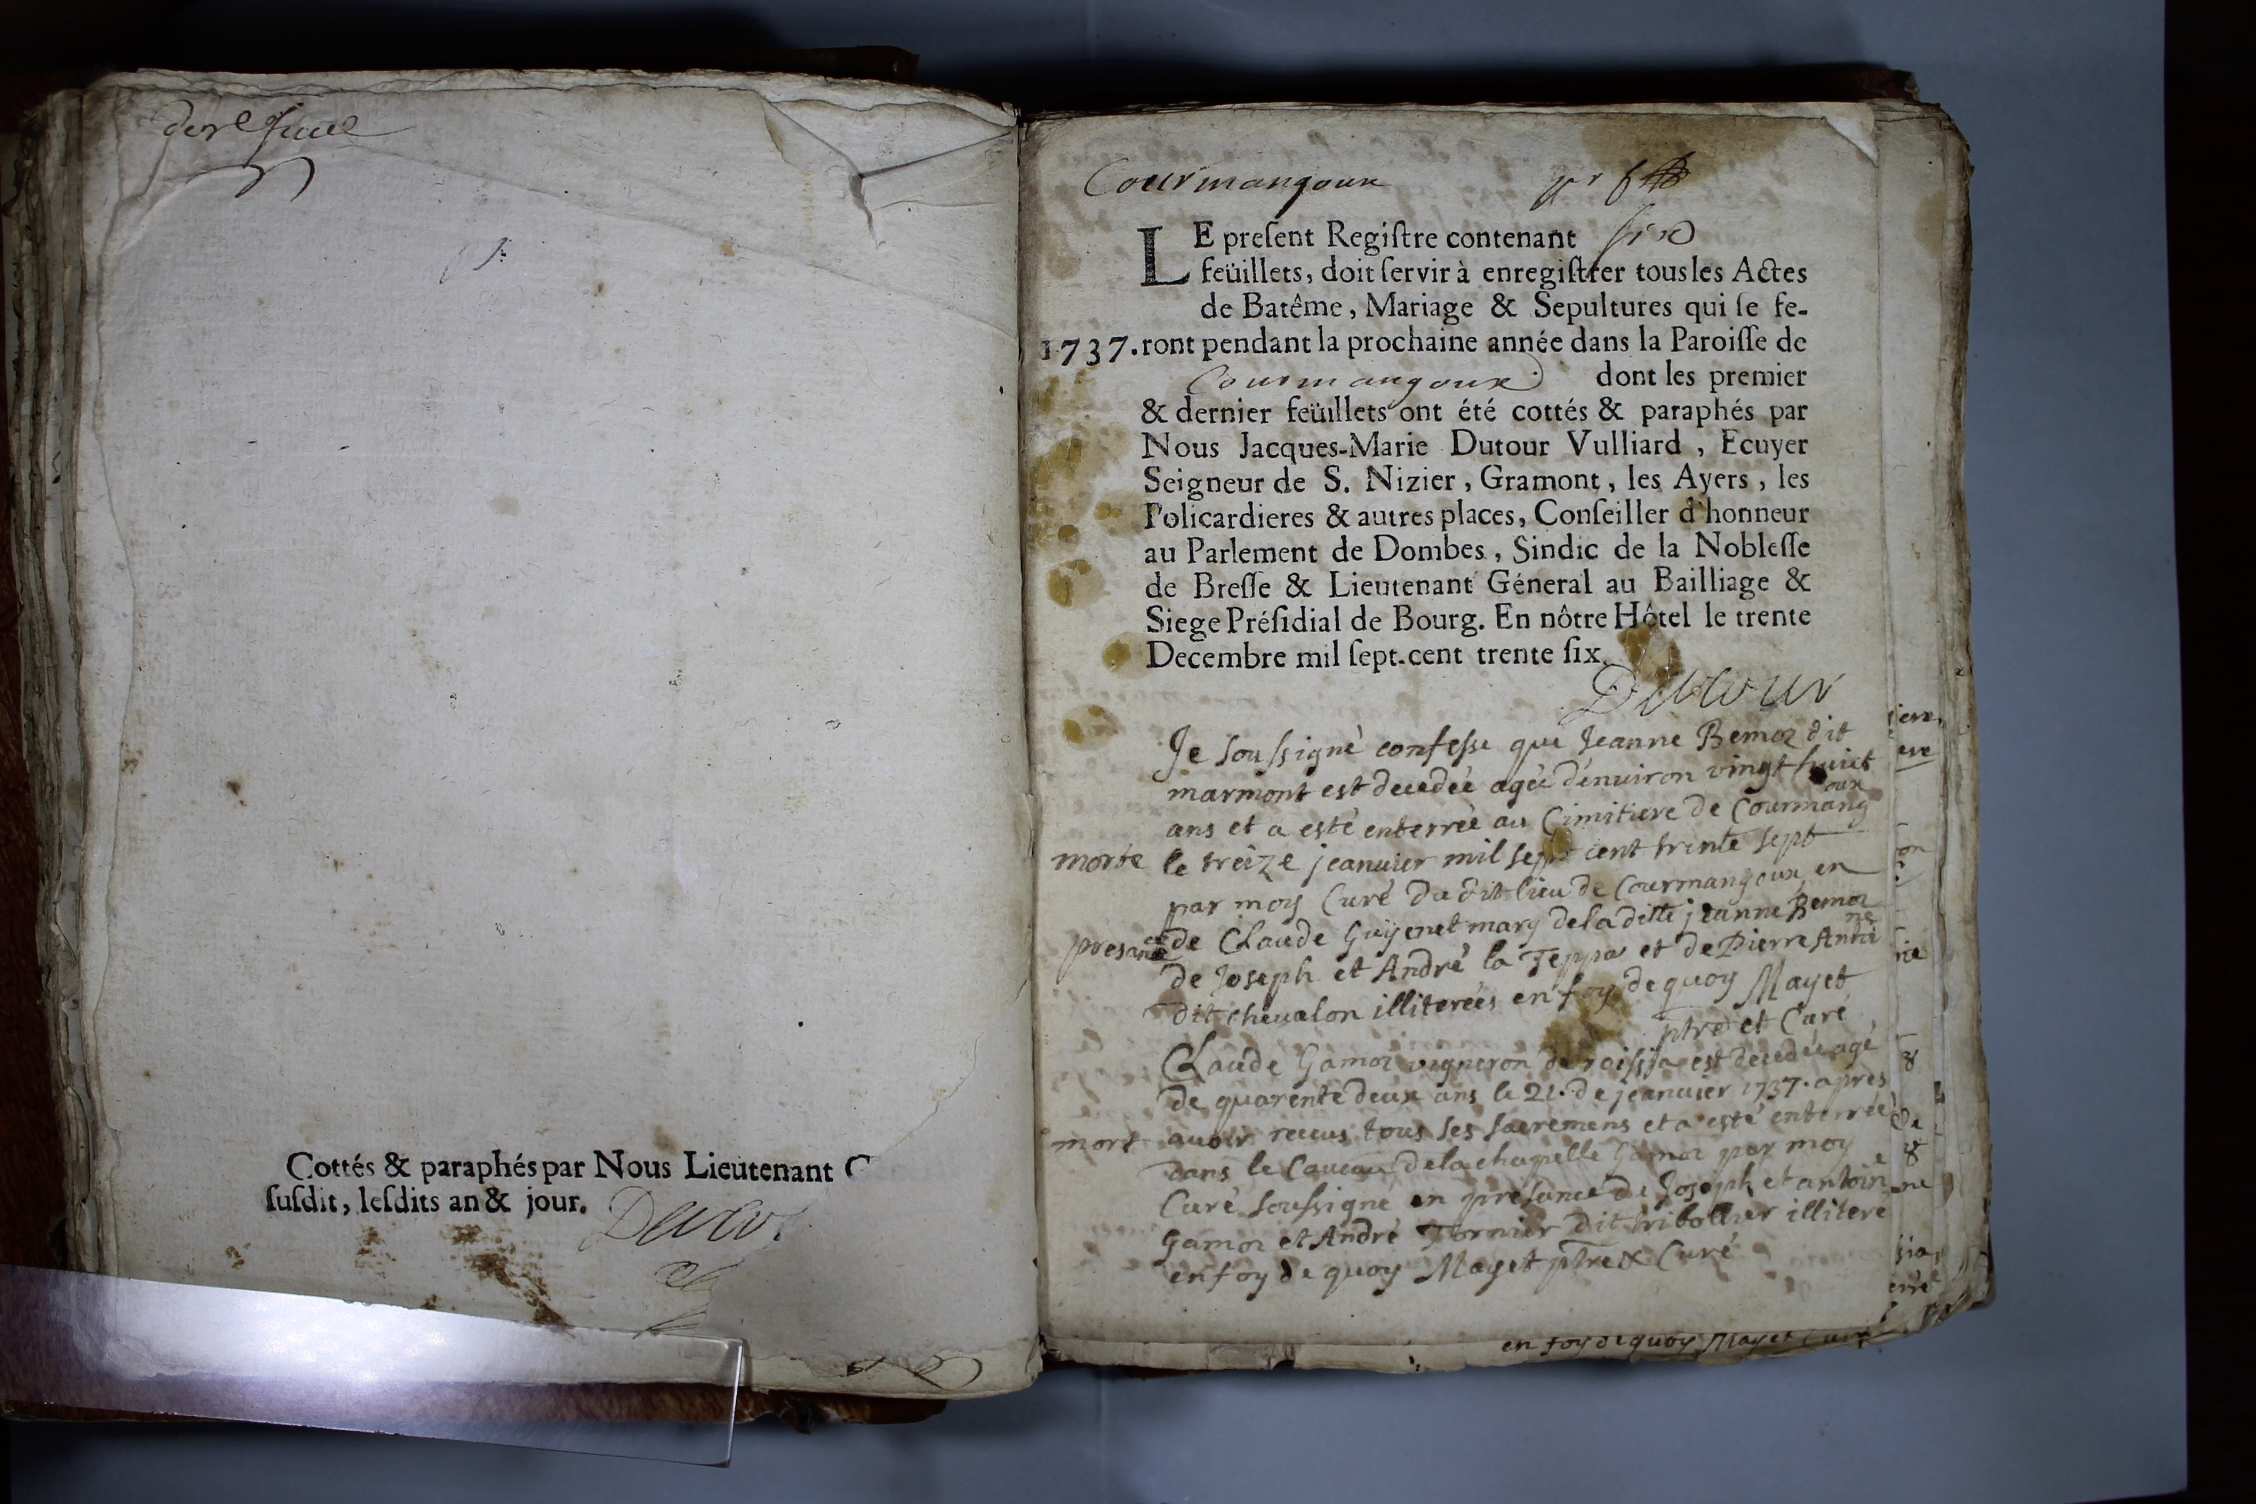 Cottés & paraphés par Nous Lieutenant G
susdit, lesdits an & jour.
Dutour
Courmangoux
LE present Registre contenant six
feüillets, doit servir à enregistrer tous les Actes
de Batême, Mariage & Sepultures qui se fe-
1737. ront pendant la prochaine année dans la Paroisse de
Courmangoux dont les premier
& dernier feüillets ont été cottés & paraphés par
Nous Jacques-Marie Dutour Vulliard, Ecuyer
Seigneur de S. Nizier, Gramont, les Ayers, les
Policardieres & autres places, Conseiller d'honneur
au Parlement de Dombes, Sindic de la Noblesse
de Bresse & Lieutenant Géneral au Bailliage &
Siege Présidial de Bourg. En nôtre Hôtel le trente
Decembre mil sept-cent trente six.
Dutour
Je soussigné confesse que Jeanne Bemoz dit
marmont est decedée agée d'enuiron vingt huict
ans et a esté enterrée au Cimitiere de Courmangoux
morte le treize jeanuier mil sept cent trente sept
par moy Curé du dit lieu de Courmangoux en
presance de Claude Guyenet mary de la ditte jeanne Bemoz
de Joseph et André la Teppa et de Pierre Antoine
dit chevalon illiterées en foy de quoy Mayet
ptre et Curé
Claude Gamoz vigneron de roissia est decedée agé
de quarente deux ans le 21. de jeanuier 1737. apres
mort auoir receus tous ses sacremens et a esté enterrée
dans le Caueau de la chapelle Gamoz par moy
Curé soussigné en presance de Joseph et antoine
Gamoz et André Tornier dit tribollier illiteré
en foy de quoy Mayet ptre & Curé
en foy de quoy Mayet Curé